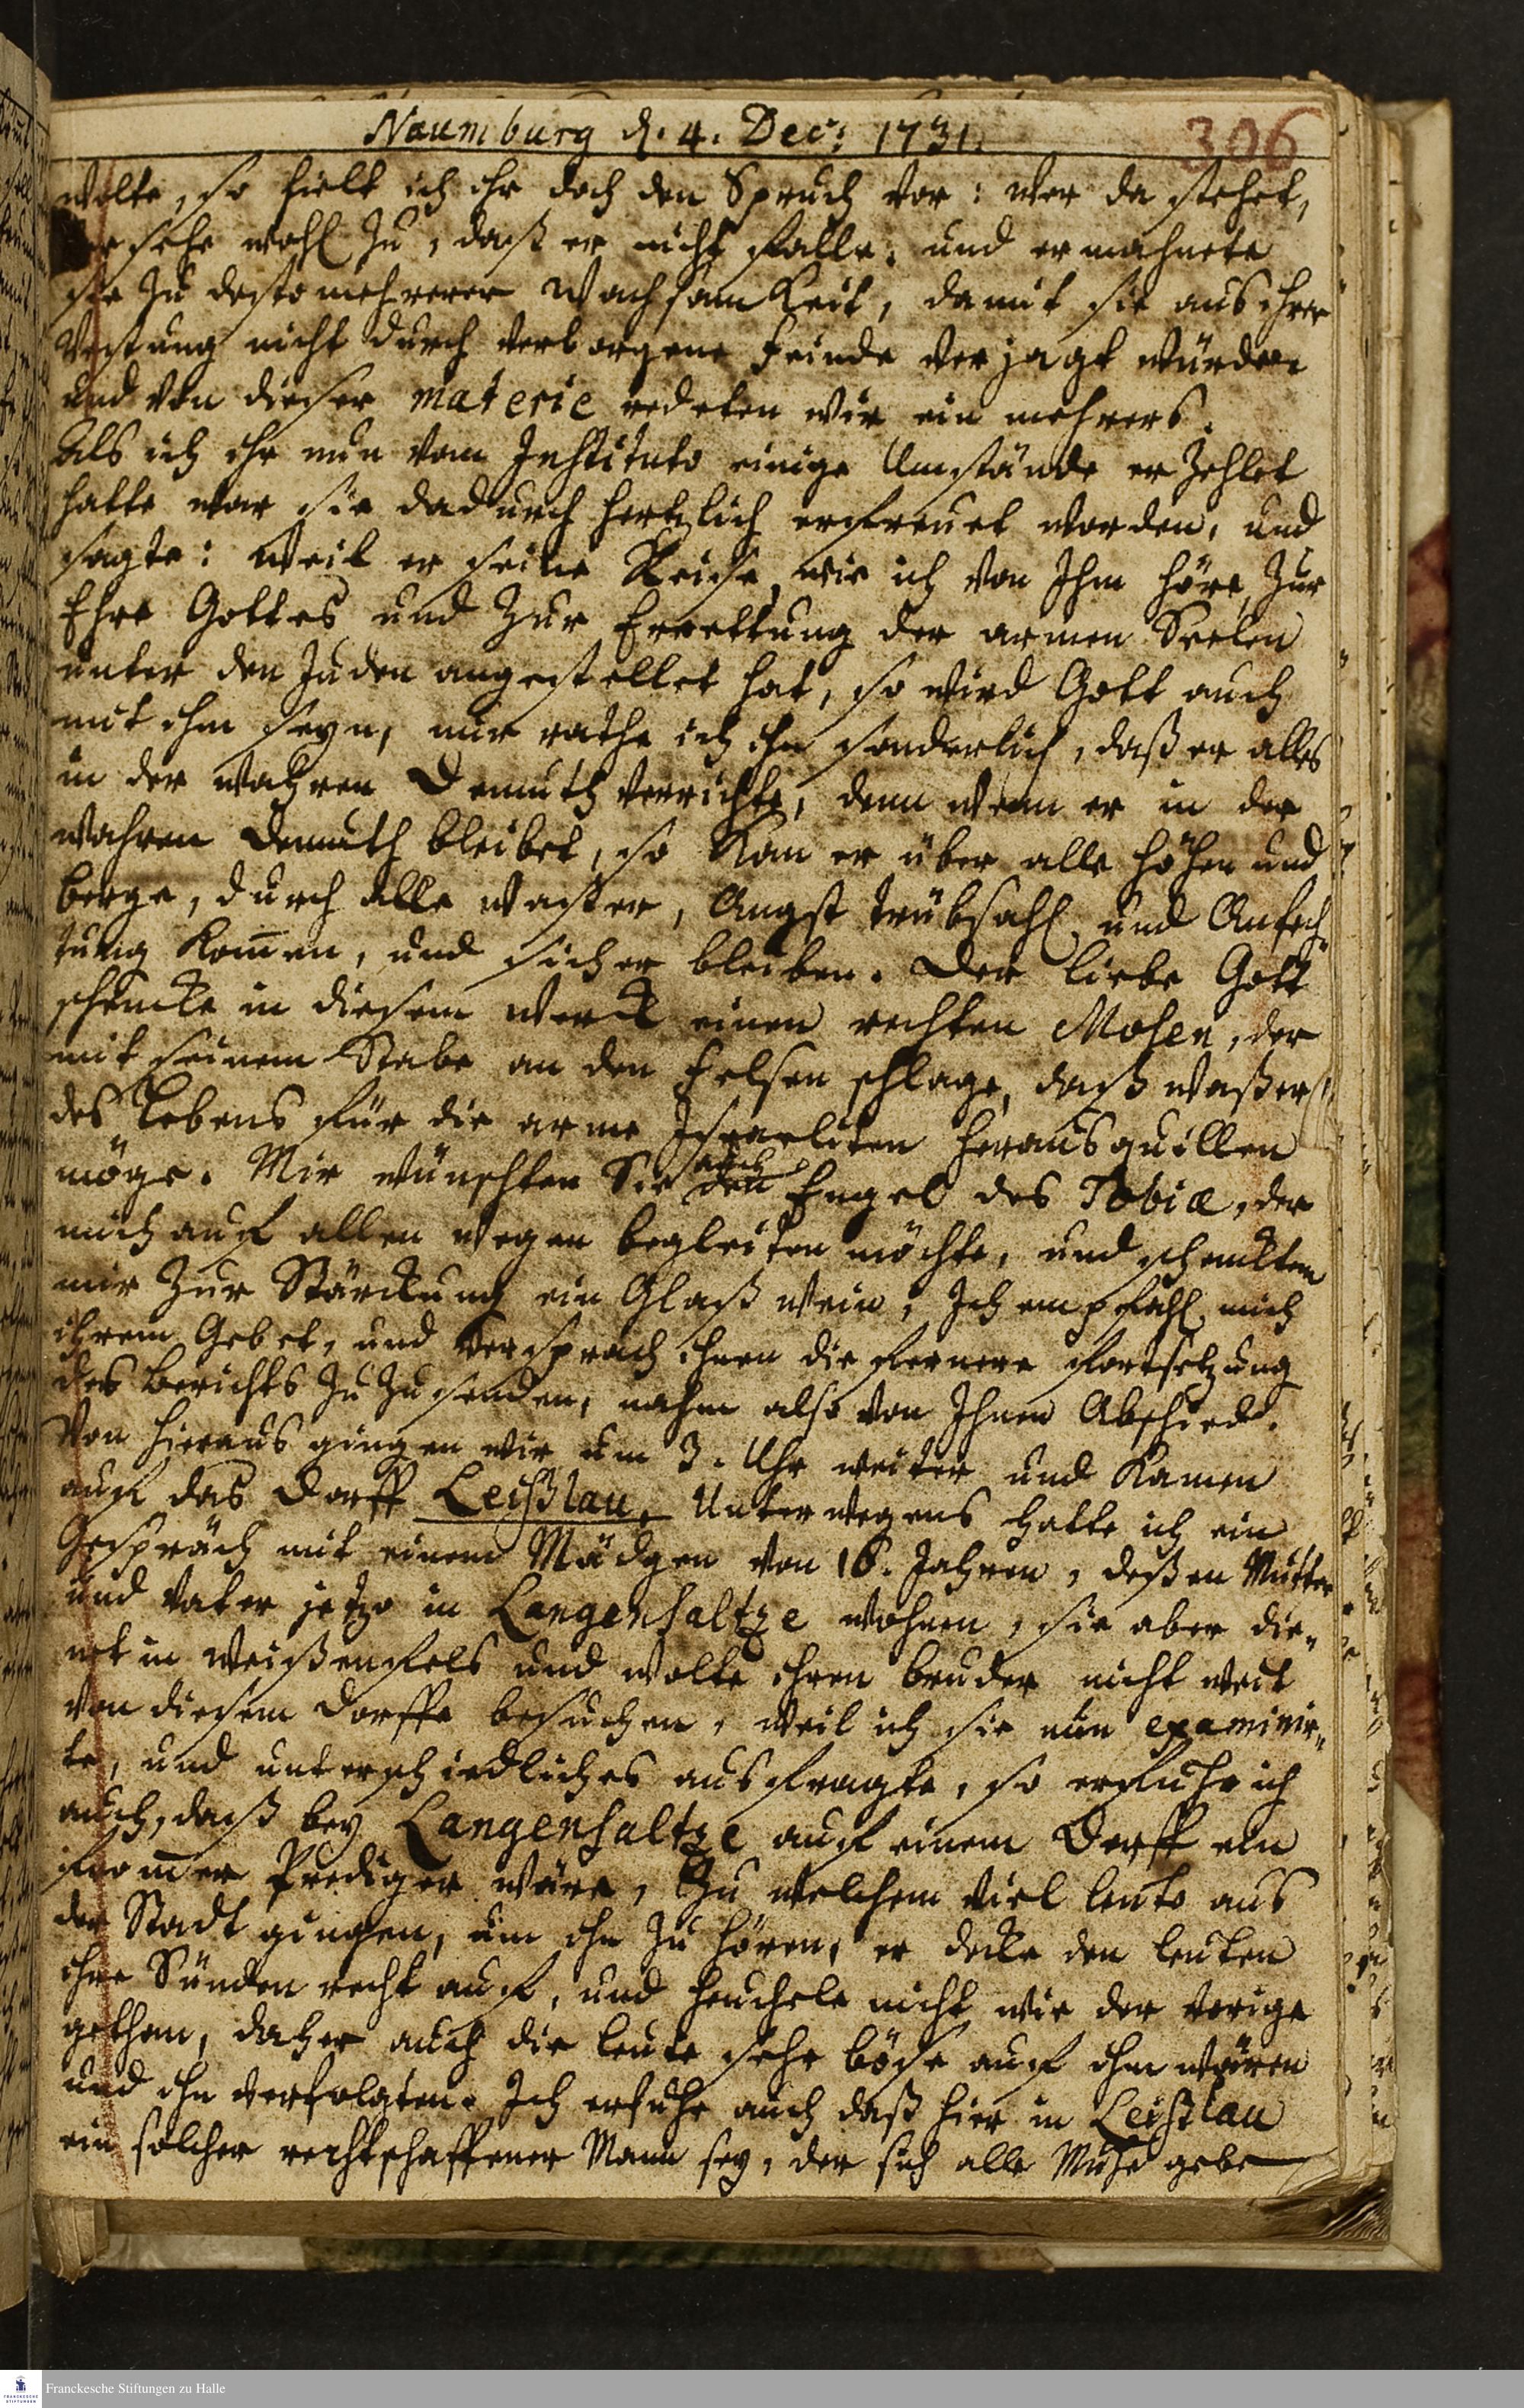 Naumburg d. 4. Dec: 1731.
306
wolte, so hielt ich ihr doch den Spruch vor: wer da stehet,
der sehe wohl zu, daß er nicht falle. und ermahnete
sie zu destomehrerer Wachsamkeit, damit sie aus ihrer
Vestung nicht durch verborgene Feinde verjagt würden
und von dieser materie redeten wir ein mehrers.
Als ich ihr nun vom Instituto einige Umstände erzehlet
hatte war sie dadurch hertzlich erfreuet worden, und
sagte: weil er seine Reise, wie ich von Ihm höre, zur
Ehre Gottes und zur Errettung der armen Seelen
unter den Juden angestellet hat, so wird Gott auch
mit ihm seyn, nur rathe ich ihn sonderlich, daß er alles
in der wahren Demuth verrichte, denn wenn er in der
wahren Demuth bleibet, so kan er über alle Höhen und
berge, durch alle wasser, Angst trübsahl und Anfech-
tung kom̄en, und sicher bleiben. Der liebe Gott
schencke in diesem Werck einen rechten Mosen, der
mit seinem Stabe an den Felsen schlage, daß waßer
des Lebens für die arme Israeliten herausquillen
möge. Mir wünschten Sie auch den Engel des Tobiæ, der
mich auf allen wegen begleiten möchte, und schenckten
mir zur Stärckung ein Glaß wein, Ich empfahl mich
ihrem Gebet, und versprach ihnen die fernere fortsetzung
des Berichts zu zu senden, nahm also von Ihnen Abschied.
Von hieraus gingen wir um 3. Uhr weiter und kamen
auf das Dorff Leißlau, Unterwegens hatte ich ein
Gespräch mit einem Mädgen von 16. Jahren, deßen Mutter
und Vater jetzo in Langensaltze wohnen, sie aber die-
net in Weißenfels und wolte ihren bruder nicht weit
von diesem Dorffe besuchen, weil ich sie nun examinir-
te, und unterschiedliches ausfragte, so erfuhr ich
auch, daß bey Langensaltze auf einem Dorff ein
from̄er Prediger wäre, Zu welchem viel leute aus
der Stadt gingen, um ihn zu hören, er decke den leuten
ihre Sünden recht auf, und heuchele nicht, wie der vorige
gethan, daher auch die leute sehr böse auf ihn wären
und ihn verfolgten. Ich erfuhr auch daß hier in Leißlau
ein solcher rechtschaffener Mann sey, der sich alle Mühe gebe
Franckesche Stiftungen zu Halle